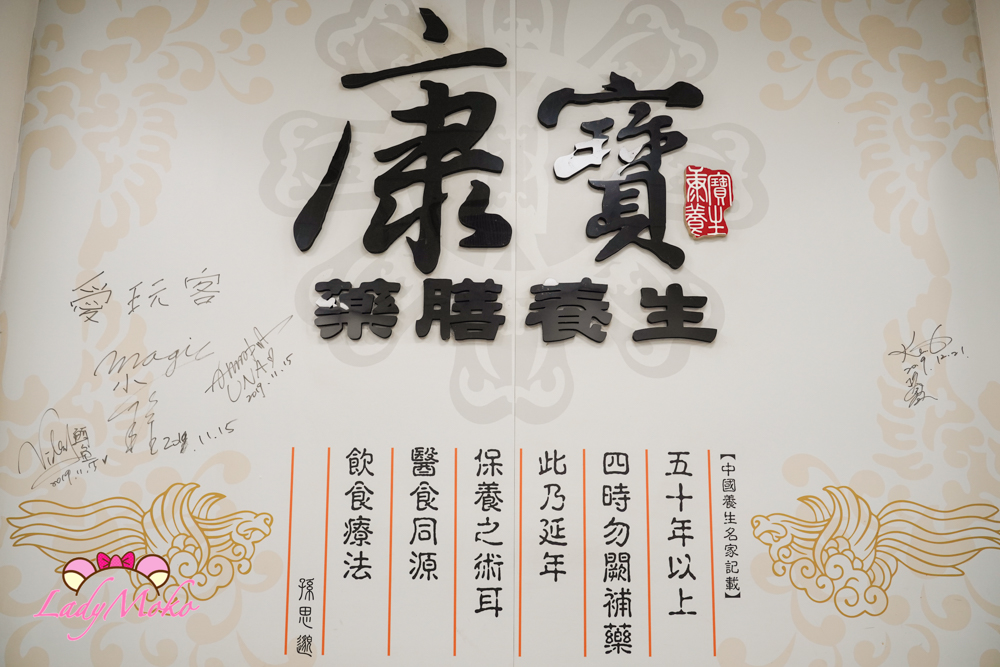 康寶
寶生
康養
藥膳養生
【中國養生名家記載】
五十年以上
四時勿闕補藥
此乃延年
保養之術耳
醫食同源
飲食療法
孫思邈
愛玩客
magic
UNA
2019.11.15
11.15
2019.11.15
2019.12.21.
LadyMoko